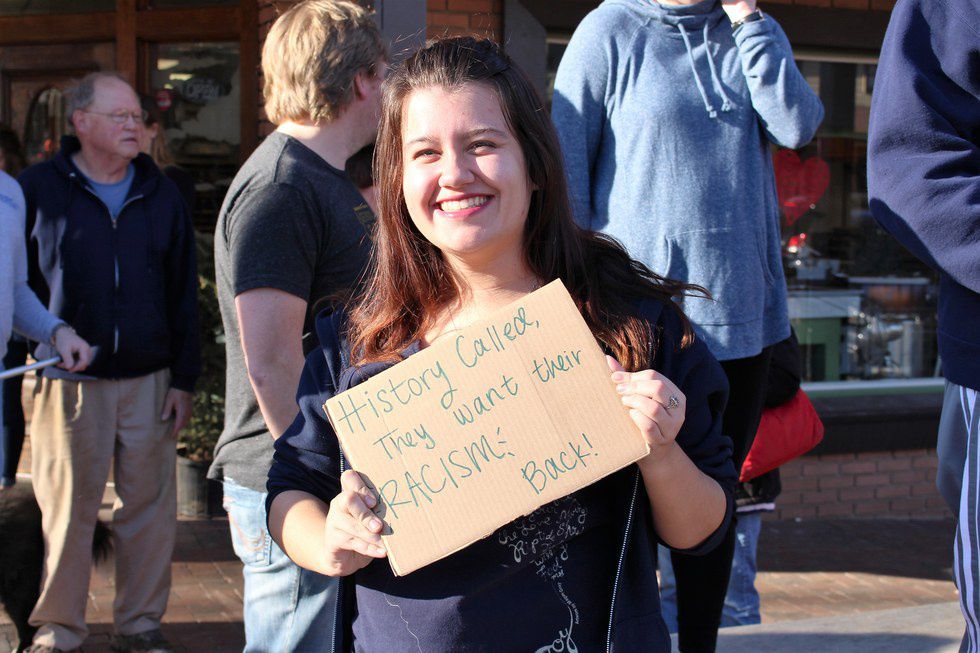 History Called,
They want their
RACISM
Back!
OPEN
Joy